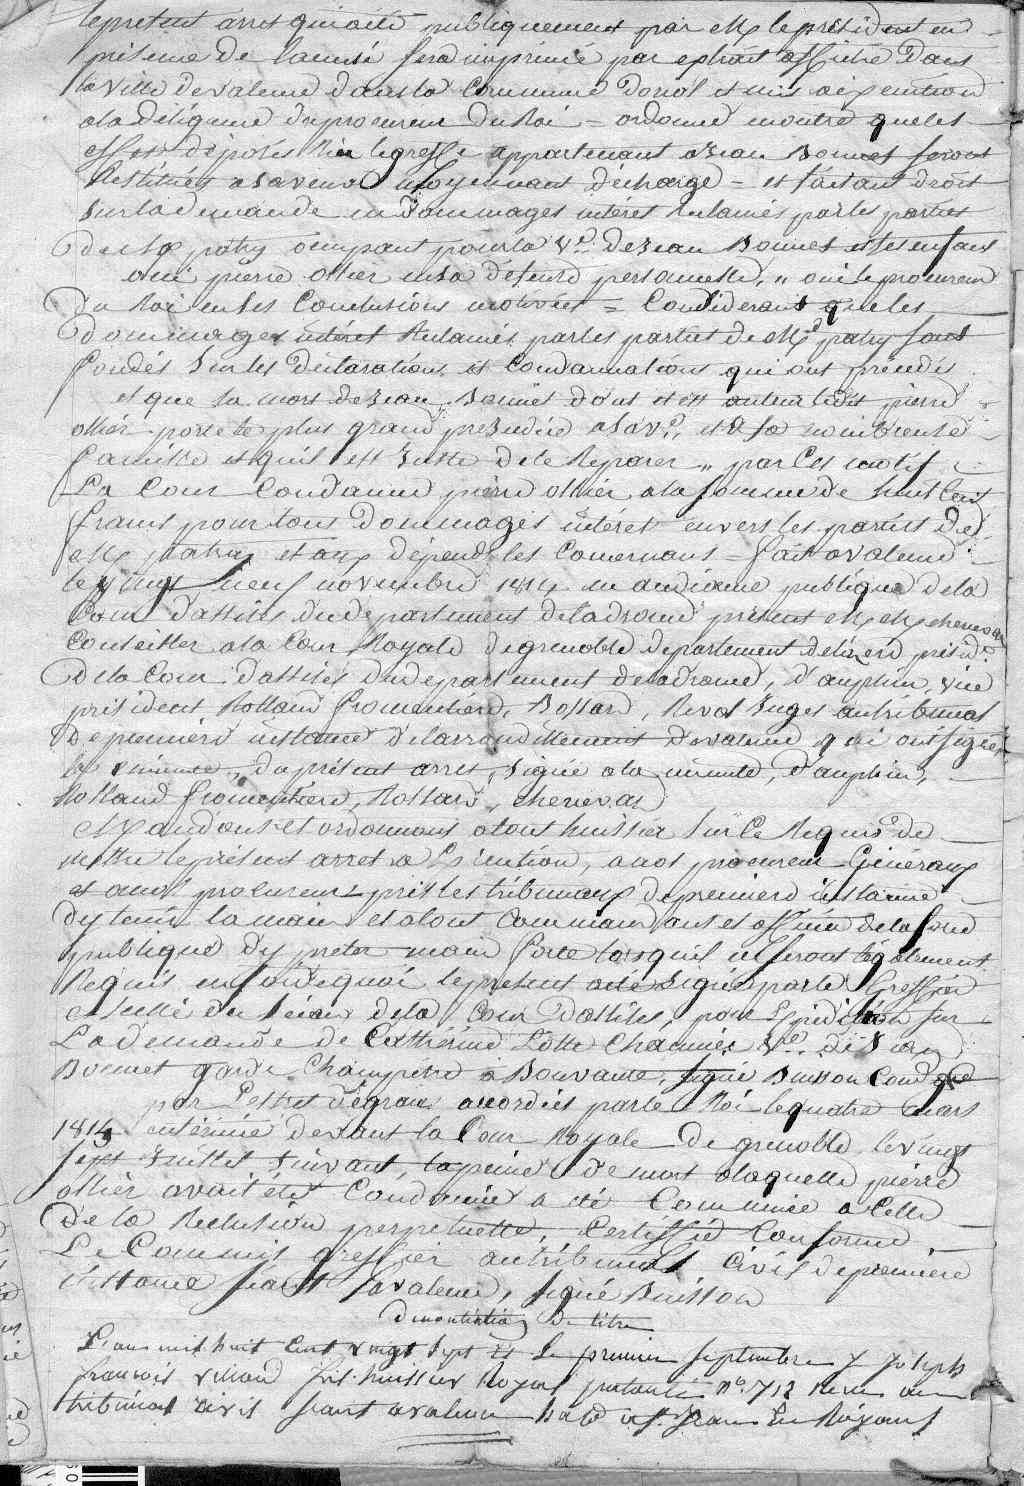 le présent arret qui a été publiquement par M le président en
présence de l'accusé sera imprimé par extrait affiché Dans
la ville de valence dans la Commune Doriol et mis a exécution
a la diligence du procureur du Roi = ordonne en outre que les
effets déposés Rière le greffe appartenant a Jean Bonnet seront
Restitués a sa veuve moyennant décharge = et faisant droit
sur la demande en Dommages intéret Réclamés par les parties
de M patry ocupant pour la Vᵉ de Jean Bonnet et ses enfans
oui pierre ollier en sa défense personnelle, " oui le procureur
du Roi en ses Conclusions motivées = Considerant que les
dommages intéret Réclamés par les parties de Mᵉ patry sont
fondés Sur les Déclarations et Condamnations qui ont précédés
et que la mort de Jean Bonnet dont est auteur ledit pierre
ollier porte le plus grand prejudice a la vᵉ, et a sa nombreuse
famille et quil est Juste de le Reparer " par Ces motifs
La Cour Condamne pierre ollier a la somme de huit Cent
francs pour tous Dommages intéret envers les parties de
Mᵉ patry et aux dépends les Concernans = fait a valence
le vingt neuf novembre 1814 en audience publique de la
Cour d'assises du departement de la drome présent M M chenevas
Conseiller a la Cour Royale de grenoble departement de lizere présidᵗ
de la Cour d'assises du departement de la drome, D'auphin, vice
président Rolland fromentiere, Bossard, Revol Juges au tribunal
de premiere instance de larrondissement de valence qui ont signé
la minute, du présent arret, signée a la minute, D'auphin,
Rolland fromentiere, Rossard, chenevas
Mandons et ordonnons a tout huissier sur Ce Requis de
mettre le présent arret a Exécution, a nos procureur Généraux
et a nos procureurs pres les tribunaux de premiere instance
d'y tenir la main et a tout Commandant et officier de la force
publique d'y preter main forte lorsquil en seront légalement
Requis en foi de quoi le présent a été signé par le Greffier
et scellé du sceau de la Cour d'assises, pour Expédition sur
La demande de Catherine Lotte Charmier Vᵉ de Jean
Bonnet garde Champetre a Bouvante, signé Buisson
par Lettres de grace accordées par le Roi le quatre mars
1814 entérinée devant la Cour Royale de grenoble, le vingt
sept Juillet suivant, la peine de mort a laquelle pierre
ollier avait été Condamné a été Commuée a Celle
De la Reclusion perpetuelle, Certifié Conforme
Le Commis greffier au tribunal Civil de premiere
instance séant a valence, signé Buisson
Dénonciation De titre
L'an mil huit Cent vingt sept et le premier septembre Joseph
francois huissier Royal patenté nᵒ 712 au
tribunal Civil séant a valence a Sᵗ Jean En Royans